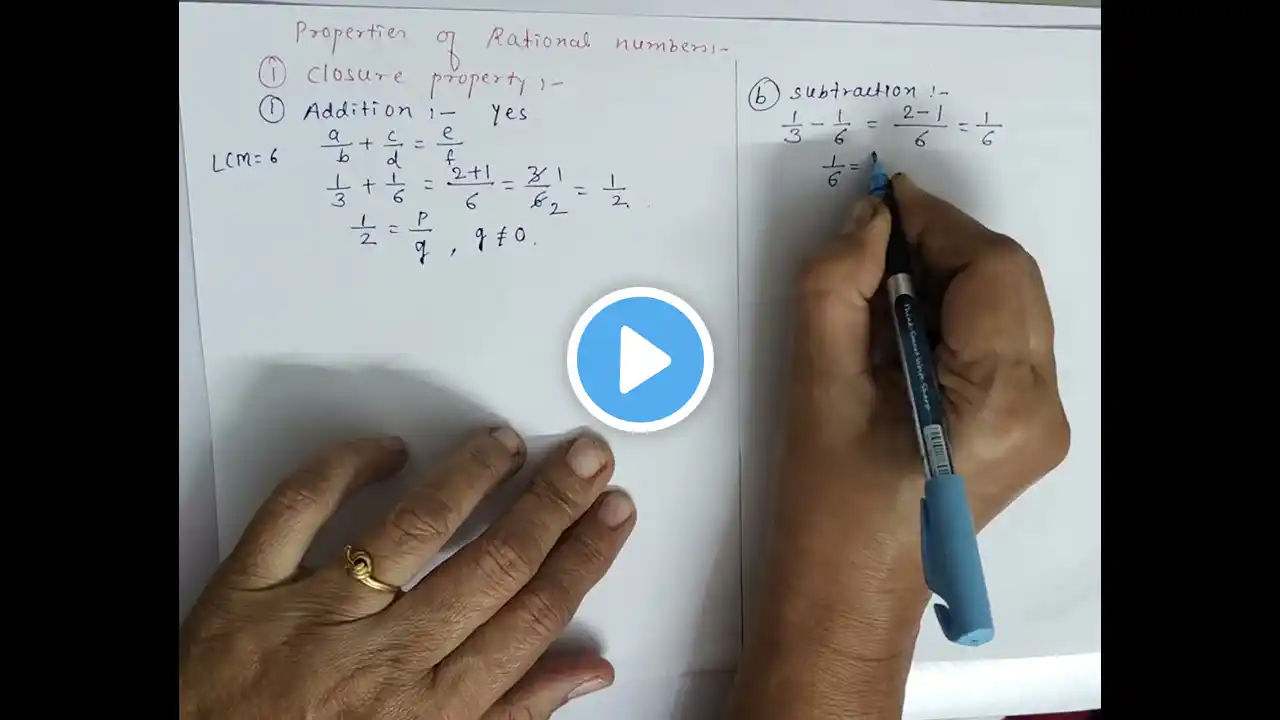 Properties of Rational numbers:-
① Closure property :-
① Addition :- Yes
a/b + c/d = e/f
LCM = 6
1/3 + 1/6 = 2+1/6 = 3/6 1/2 = 1/2
1/2 = p/q , q ≠ 0.
ⓑ Subtraction :-
1/3 - 1/6 = 2-1/6 = 1/6
1/6 =